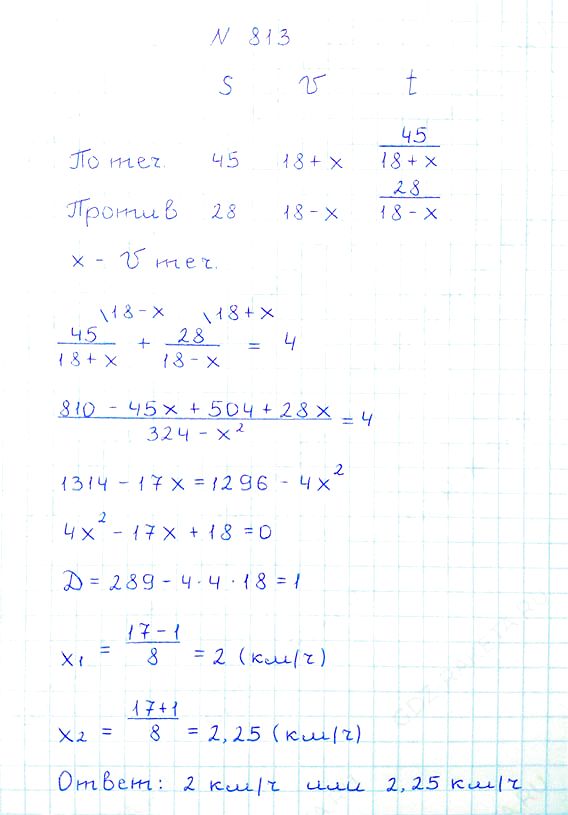 N 813
S V t
По теч. 45 18+x 45/(18+x)
Против 28 18-x 28/(18-x)
x - V теч.
45/(18+x) \18-x + 28/(18-x) \18+x = 4
(810 - 45x + 504 + 28x)/(324 - x²) = 4
1314 - 17x = 1296 - 4x²
4x² - 17x + 18 = 0
D = 289 - 4·4·18 = 1
x₁ = (17-1)/8 = 2 (км/ч)
x₂ = (17+1)/8 = 2,25 (км/ч)
Ответ: 2 км/ч или 2,25 км/ч